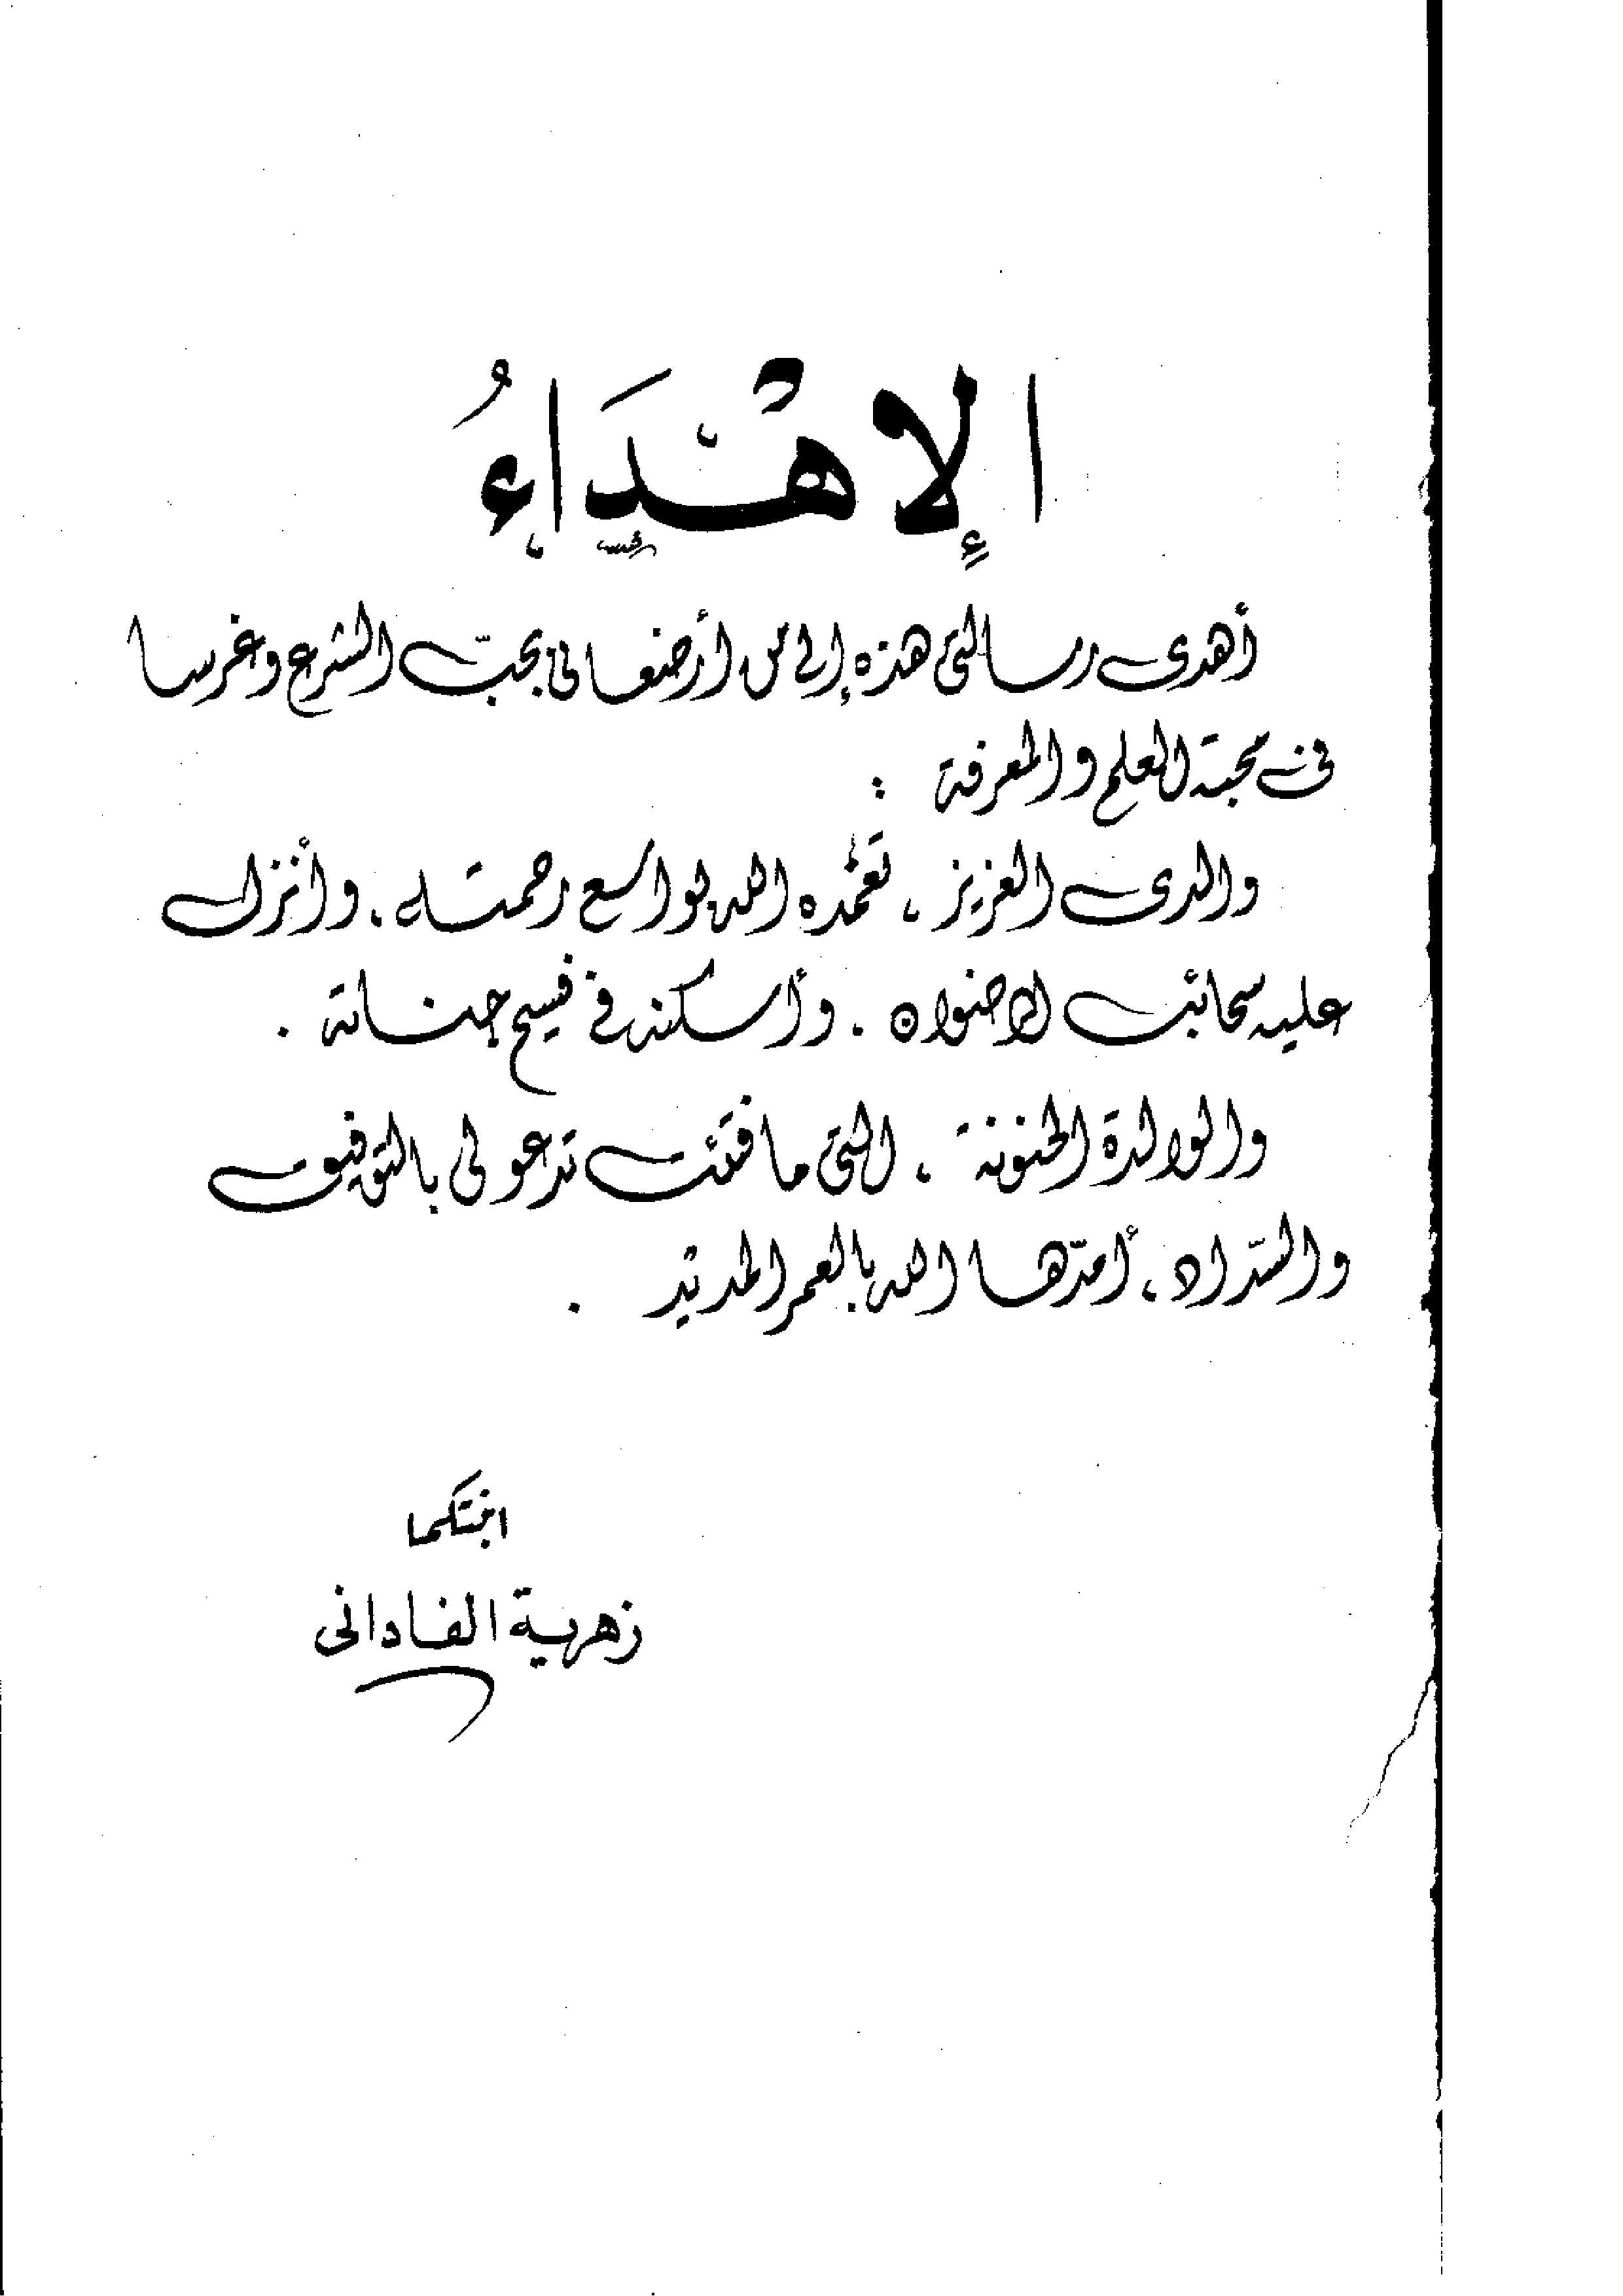 الإهْدَاءُ
أهدى رسالتى هذه إلى من أرضعانى بحبّ الشرع وغرسا
فى محبة العلم والمعرفة :
والدى العزيز ، تغمّده الله بواسع رحمته ، وأنزل
عليه سحائب الرضوان . وأسكنه فى فسيح جناته .
والوالدة الحنونة ، التى ما فتئت تدعو لى بالتوفيق
والسّداد ، أمدّها الله بالعمر المديد .
ابنتكما
زهرية الفادانى